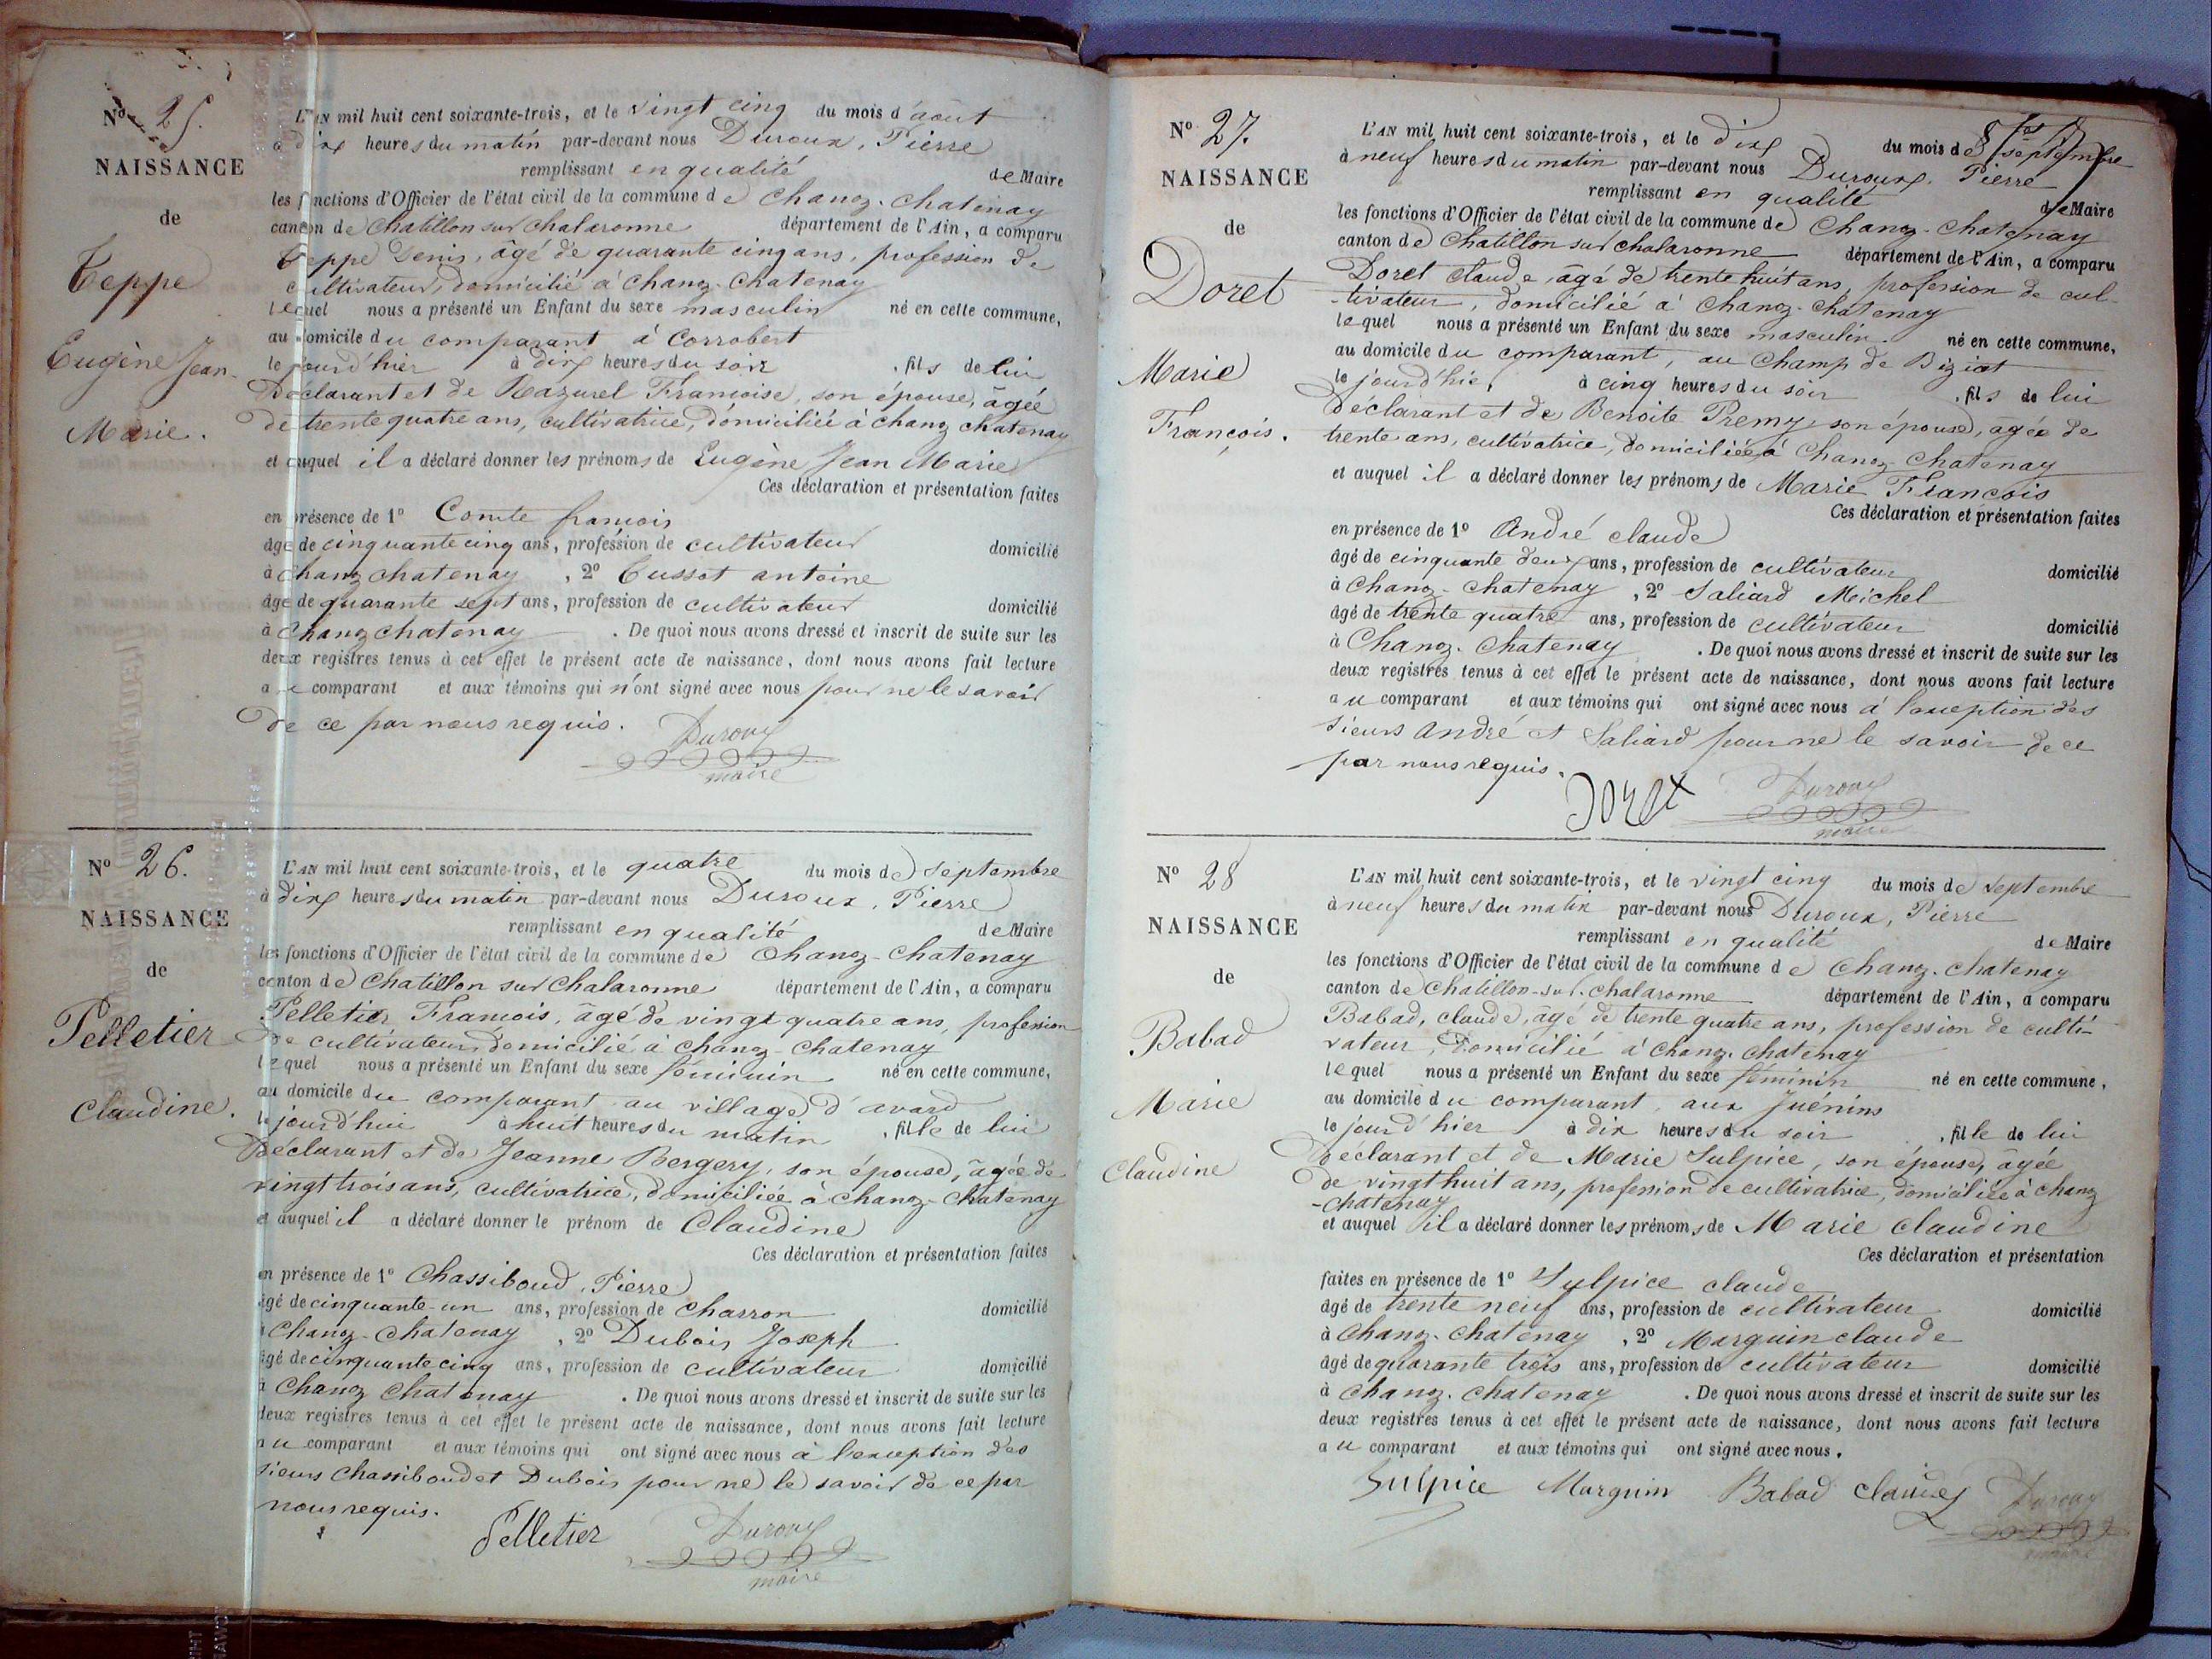 Nº 25.
NAISSANCE
de
Teppe
Eugène Jean-
Marie.
L'AN mil huit cent soixante-trois, et le vingt cinq du mois d'août
à dix heures du matin par-devant nous Duroux, Pierre
remplissant en qualité de Maire
les fonctions d'Officier de l'état civil de la commune de Chanoz-Chatenay
canton de Chatillon sur Chalaronne département de l'Ain, a comparu
Teppe Denis, âgé de quarante cinq ans, profession de
cultivateur, domicilié à Chanoz-Chatenay
lequel nous a présenté un Enfant du sexe masculin né en cette commune,
au domicile du comparant à Corrobert
le jour d'hier à dix heures du soir, fils de lui
Déclarant et de Françoise, son épouse, âgée
de trente quatre ans, cultivatrice, domiciliée à Chanoz Chatenay
et auquel il a déclaré donner les prénoms de Eugène Jean Marie
Ces déclaration et présentation faites
en présence de 1º Comte françois
âgé de cinquante cinq ans, profession de cultivateur domicilié
à Chanoz Chatenay, 2º Cussot antoine
âgé de quarante sept ans, profession de cultivateur domicilié
à Chanoz Chatenay. De quoi nous avons dressé et inscrit de suite sur les
deux registres tenus à cet effet le présent acte de naissance, dont nous avons fait lecture
au comparant et aux témoins qui n'ont signé avec nous pour ne le savoir
de ce par nous requis.
Duroux
maire
Nº 26.
NAISSANCE
de
Pelletier
Claudine.
L'AN mil huit cent soixante-trois, et le quatre du mois de septembre
à dix heures du matin par-devant nous Duroux, Pierre
remplissant en qualité de Maire
les fonctions d'Officier de l'état civil de la commune de Chanoz-Chatenay
canton de Chatillon sur Chalaronne département de l'Ain, a comparu
Pelletier François, âgé de vingt quatre ans, profession
de cultivateur, domicilié à Chanoz-Chatenay
lequel nous a présenté un Enfant du sexe féminin né en cette commune,
au domicile du comparant au village d'avard
le jourd'hui à huit heures du matin, fille de lui
Déclarant et de Jeanne Bergery, son épouse, âgée de
vingt trois ans, cultivatrice, domiciliée à Chanoz-Chatenay
et auquel il a déclaré donner le prénom de Claudine
Ces déclaration et présentation faites
en présence de 1º Chassiboud, Pierre
âgé de cinquante-un ans, profession de Charron domicilié
à Chanoz-Chatenay, 2º Dubois Joseph
âgé de cinquante cinq ans, profession de cultivateur domicilié
à Chanoz Chatenay. De quoi nous avons dressé et inscrit de suite sur les
deux registres tenus à cet effet le présent acte de naissance, dont nous avons fait lecture
au comparant et aux témoins qui ont signé avec nous à l'exception des
sieurs Chassiboud et Dubois pour ne le savoir de ce par
nous requis.
Pelletier Duroux
maire
Nº 27.
NAISSANCE
de
Doret
Marie
François.
L'AN mil huit cent soixante-trois, et le dix du mois de septembre
à neuf heures du matin par-devant nous Duroux, Pierre
remplissant en qualité de Maire
les fonctions d'Officier de l'état civil de la commune de Chanoz-Chatenay
canton de Chatillon sur Chalaronne département de l'Ain, a comparu
Doret Claude, âgé de trente huit ans, profession de cul-
-tivateur, domicilié à Chanoz-Chatenay
lequel nous a présenté un Enfant du sexe masculin né en cette commune,
au domicile du comparant, au Champ de Biziat
le jour d'hier à cinq heures du soir, fils de lui
Déclarant et de Benoite Premy, son épouse, âgée de
trente ans, cultivatrice, domiciliée à Chanoz-Chatenay
et auquel il a déclaré donner les prénoms de Marie François
Ces déclaration et présentation faites
en présence de 1º André Claude
âgé de cinquante deux ans, profession de cultivateur domicilié
à Chanoz-Chatenay, 2º Saliard Michel
âgé de trente quatre ans, profession de cultivateur domicilié
à Chanoz-Chatenay. De quoi nous avons dressé et inscrit de suite sur les
deux registres tenus à cet effet le présent acte de naissance, dont nous avons fait lecture
au comparant et aux témoins qui ont signé avec nous à l'exception des
sieurs André et Saliard pour ne le savoir de ce
par nous requis.
Doret Duroux
maire
Nº 28
NAISSANCE
de
Babad
Marie
Claudine
L'AN mil huit cent soixante-trois, et le vingt cinq du mois de septembre
à neuf heures du matin par-devant nous Duroux, Pierre
remplissant en qualité de Maire
les fonctions d'Officier de l'état civil de la commune de Chanoz-Chatenay
canton de Chatillon-sur-Chalaronne département de l'Ain, a comparu
Babad, Claude, âgé de trente quatre ans, profession de culti-
vateur, domicilié à Chanoz-Chatenay
lequel nous a présenté un Enfant du sexe féminin né en cette commune,
au domicile du comparant, aux Juénins
le jour d'hier à dix heures du soir, fille de lui
Déclarant et de Marie Sulpice, son épouse, âgée
de vingt huit ans, profession de cultivatrice, domiciliée à Chanoz
-Chatenay
et auquel il a déclaré donner les prénoms de Marie Claudine
Ces déclaration et présentation
faites en présence de 1º Sulpice Claude
âgé de trente neuf ans, profession de cultivateur domicilié
à Chanoz-Chatenay, 2º Marguin Claude
âgé de quarante trois ans, profession de cultivateur domicilié
à Chanoz-Chatenay. De quoi nous avons dressé et inscrit de suite sur les
deux registres tenus à cet effet le présent acte de naissance, dont nous avons fait lecture
au comparant et aux témoins qui ont signé avec nous.
Sulpice Marguin Babad Claude Duroux
maire